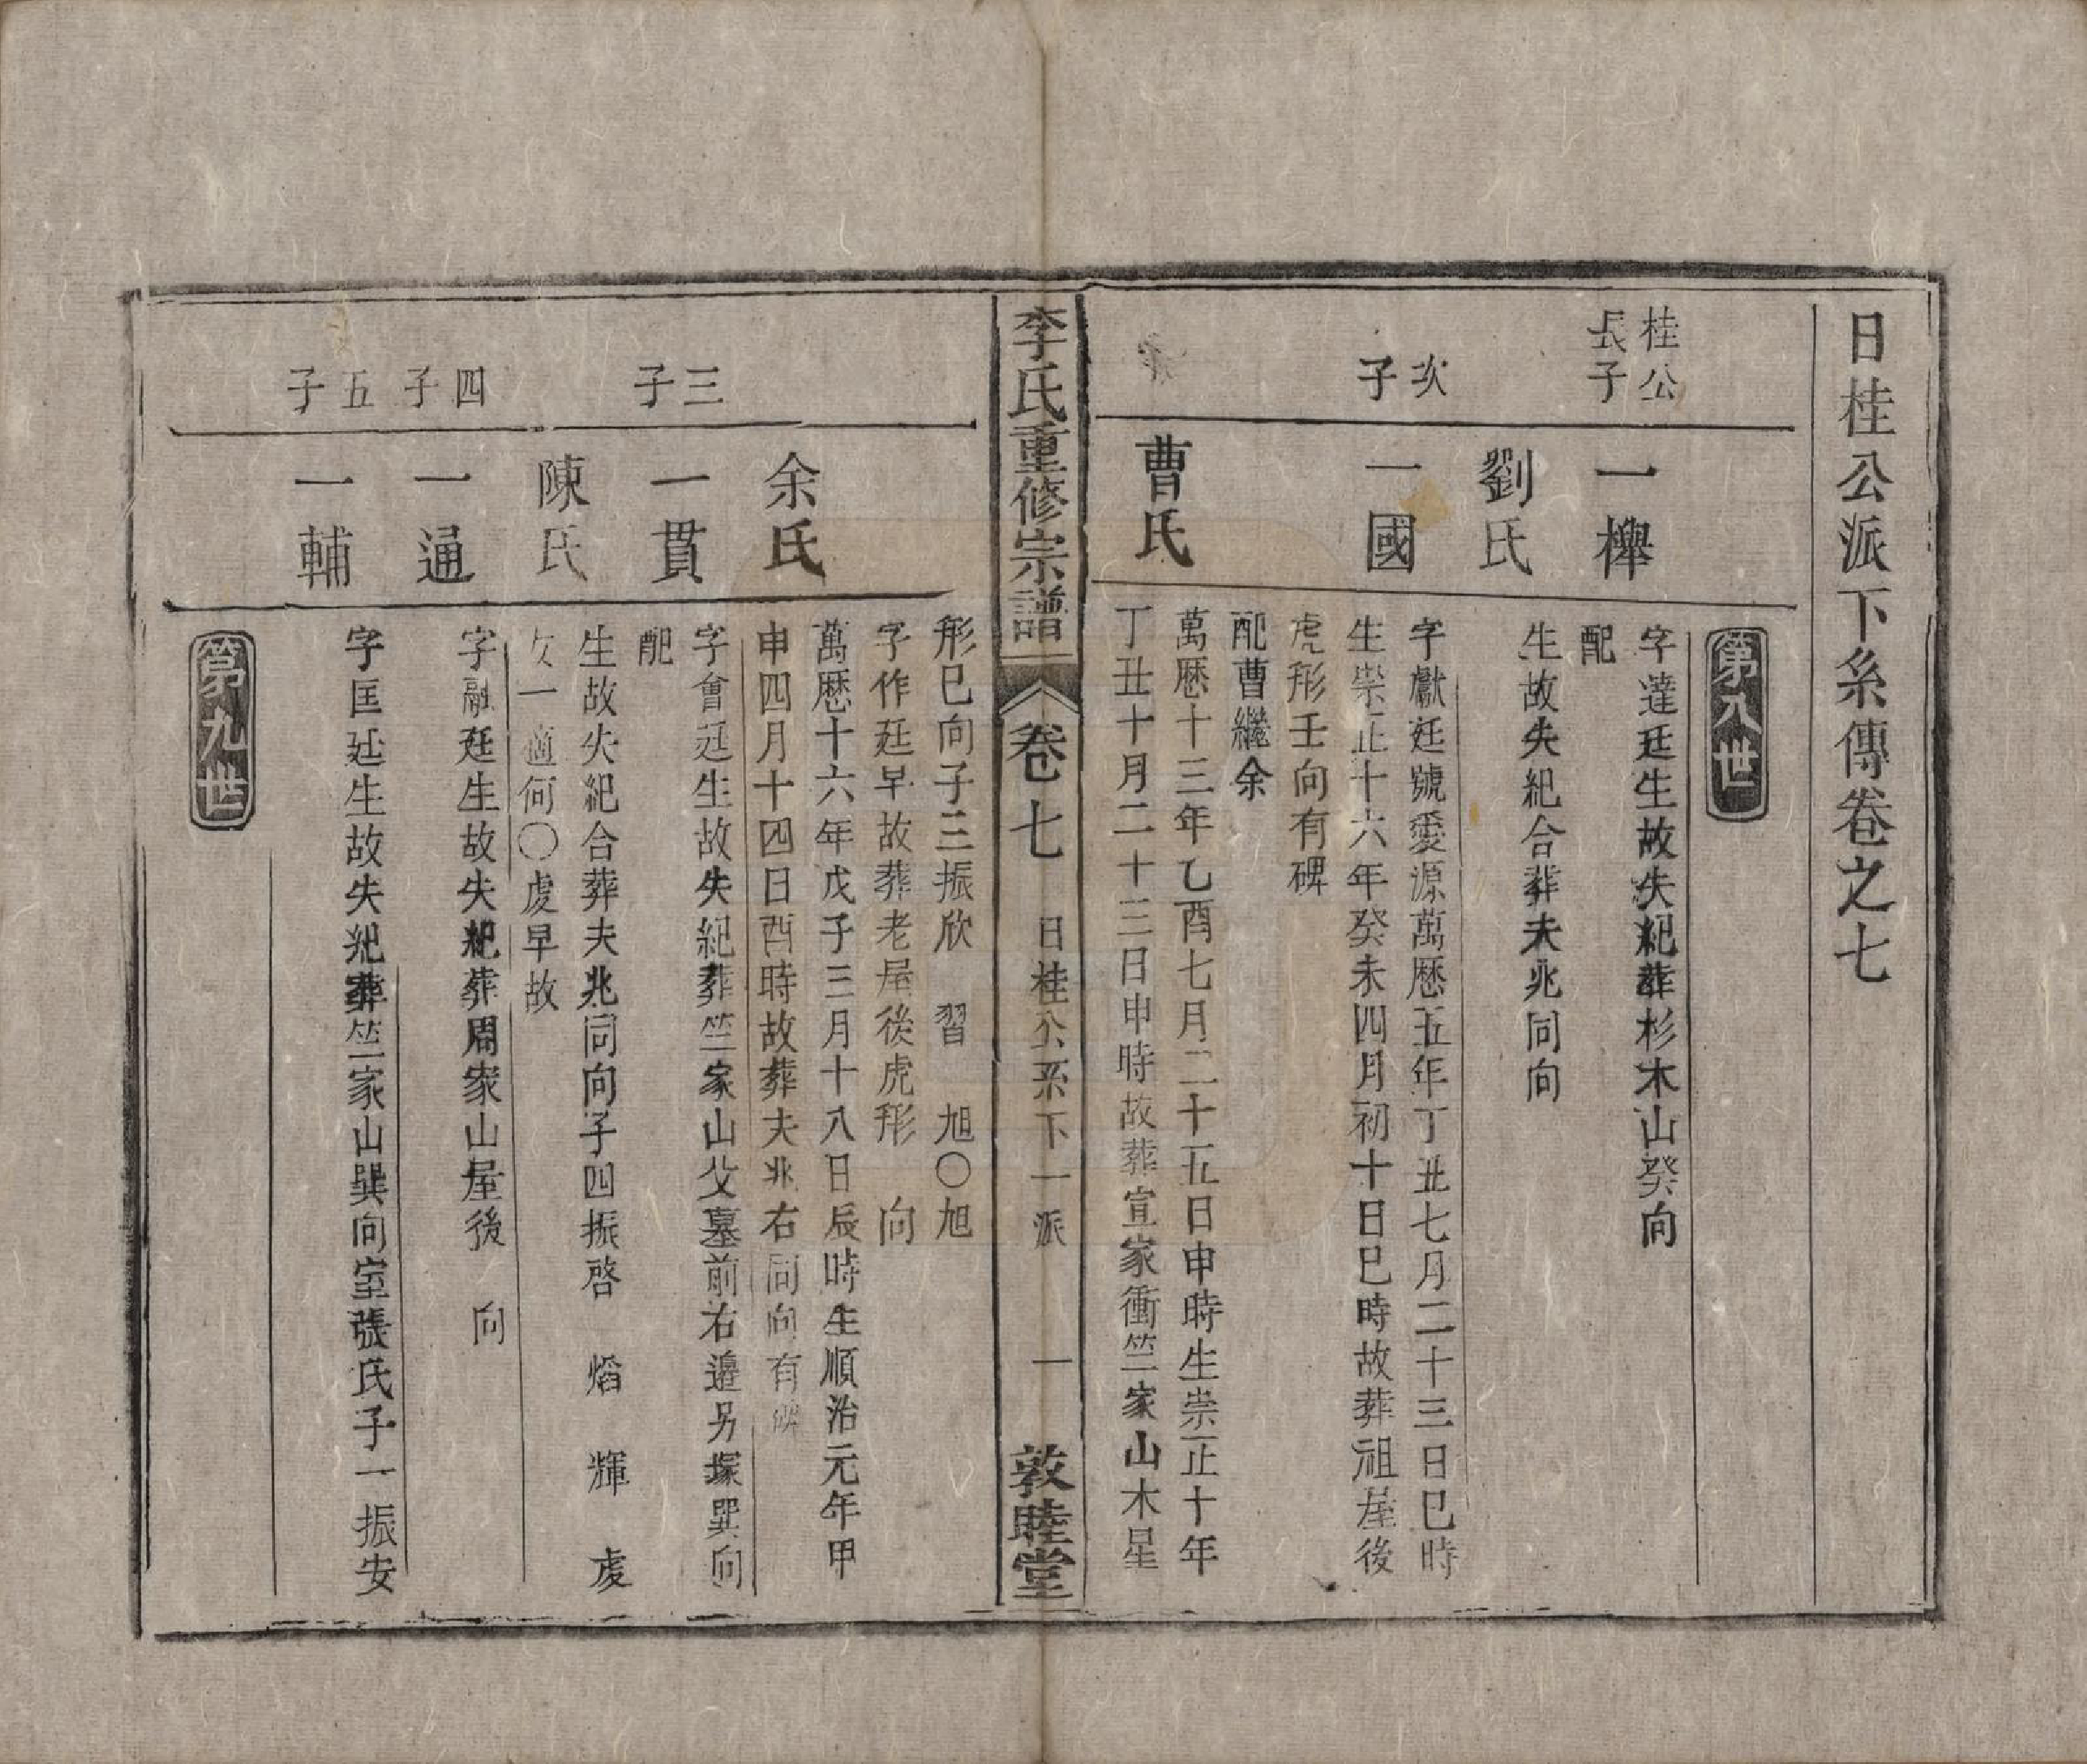 日桂公派下糸傳卷之七
第八世
桂公長子
一櫸
字達廷生故失紀葬杉木山癸向
配
劉氏
生故失紀合葬夫兆同向
次子
一國
字獻廷號愛源萬歷五年丁丑七月二十三日巳時
生崇正十六年癸未四月初十日巳時故葬祖屋後
虎形壬向有碑
配曹繼余
曹氏
萬歷十三年乙酉七月二十五日申時生崇正十年
丁丑十月二十三日申時故葬宣家衝竺家山木星
李氏重修宗譜
卷七
日桂公系下一派
一
敦睦堂
形巳向子三振欣 習 旭〇旭
字作廷早故葬老屋後虎形 向
余氏
萬歷十六年戊子三月十八日辰時生順治元年甲
申四月十四日酉時故葬夫兆右同向有碑
三子
一貫
字會廷生故失紀葬竺家山父墓前右邊另塚巽向
配
陳氏
生故失紀合葬夫兆同向子四振啓 熖 輝 虔
女一適何〇虔早故
四子
一通
字融廷生故失紀葬周家山屋後 向
五子
一輔
字匡廷生故失紀葬竺家山巽向室張氏子一振安
第九世